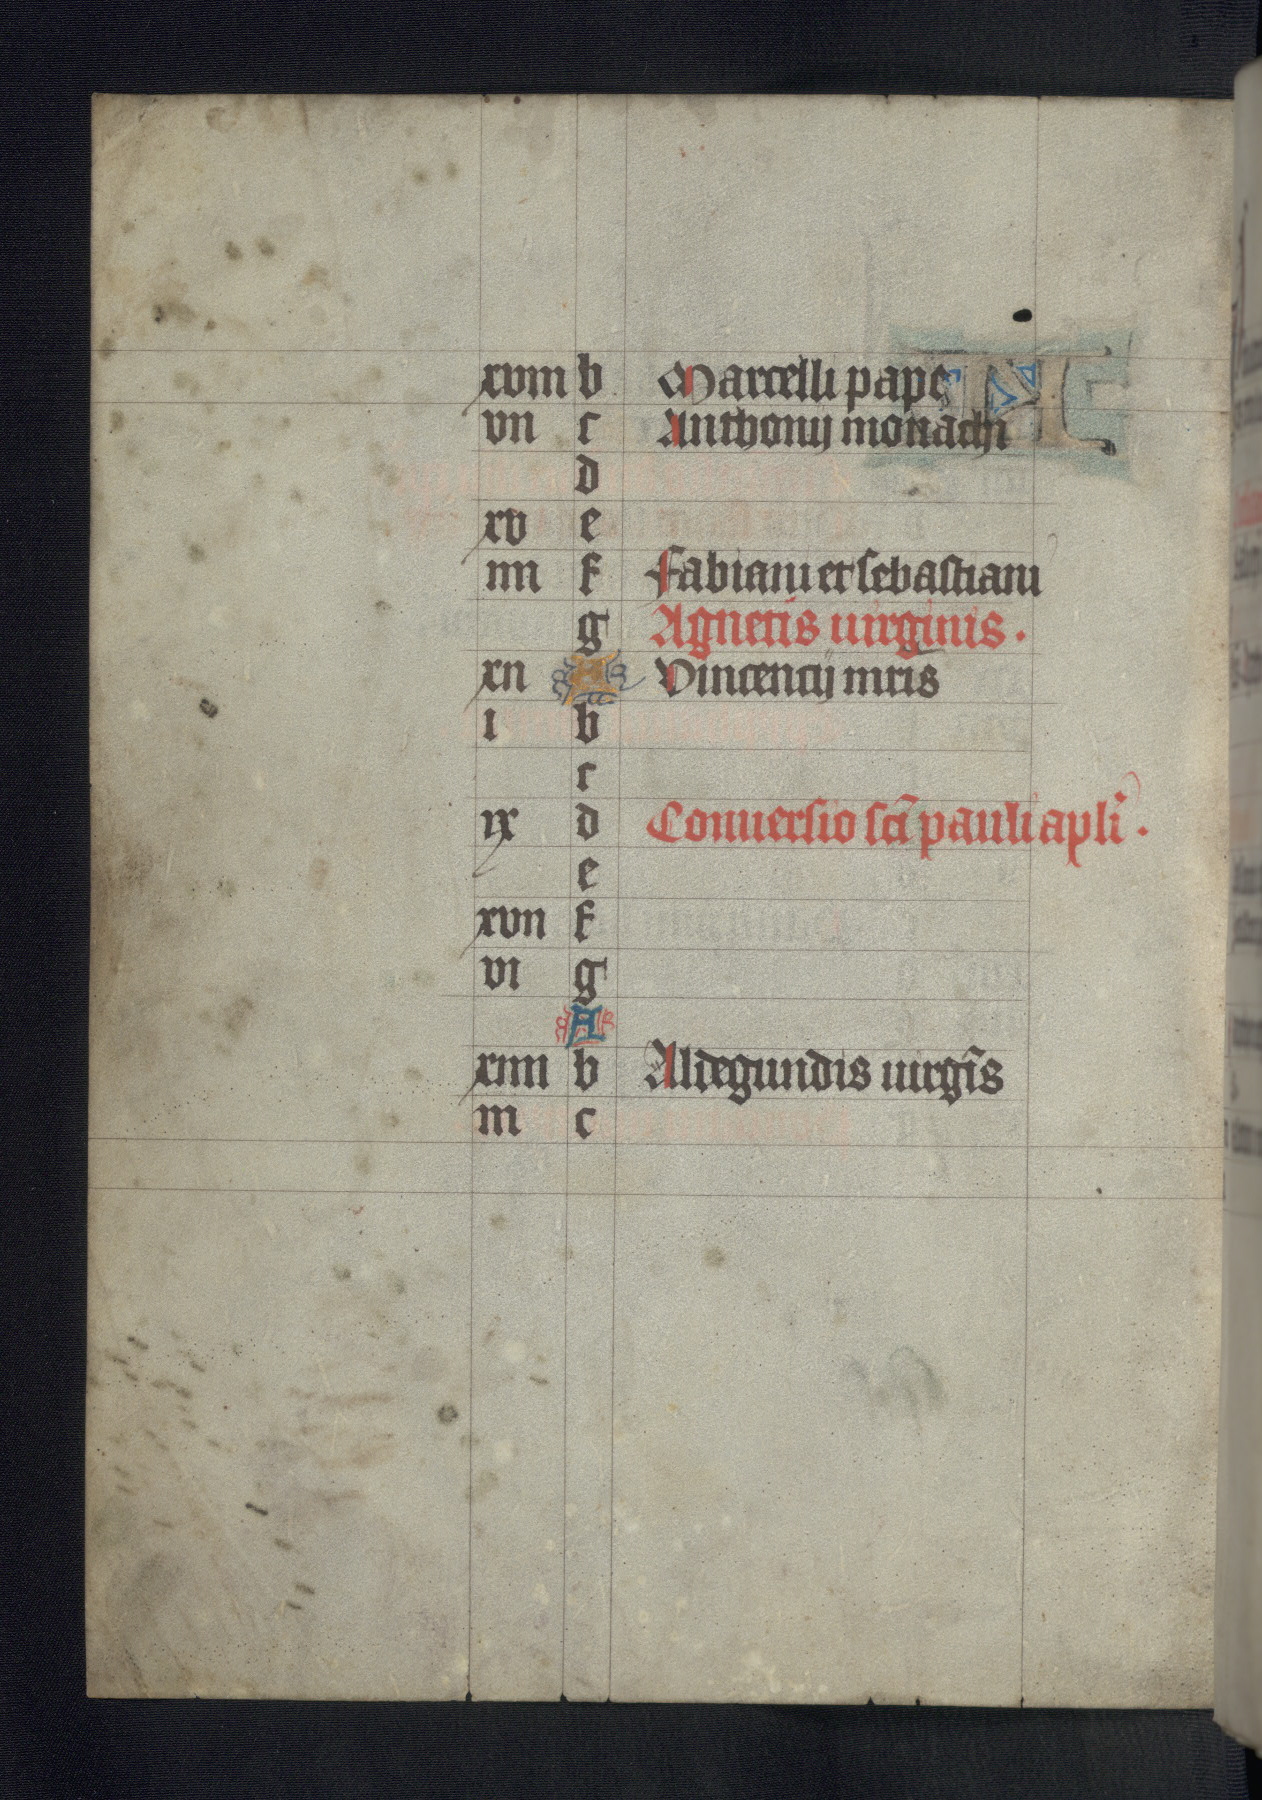 xviii b Marcelli pape
vii c Anthonij monachi
d
xv e
iiii f Fabiani et sebastiani
g Agnetis uirginis.
xii A Vincencij mr̄is
i b
c
ix d Conuersio sc̄i pauli apl̄i.
e
xvii f
vi g
A
xiiii b Aldegundis uirgīs
iii c